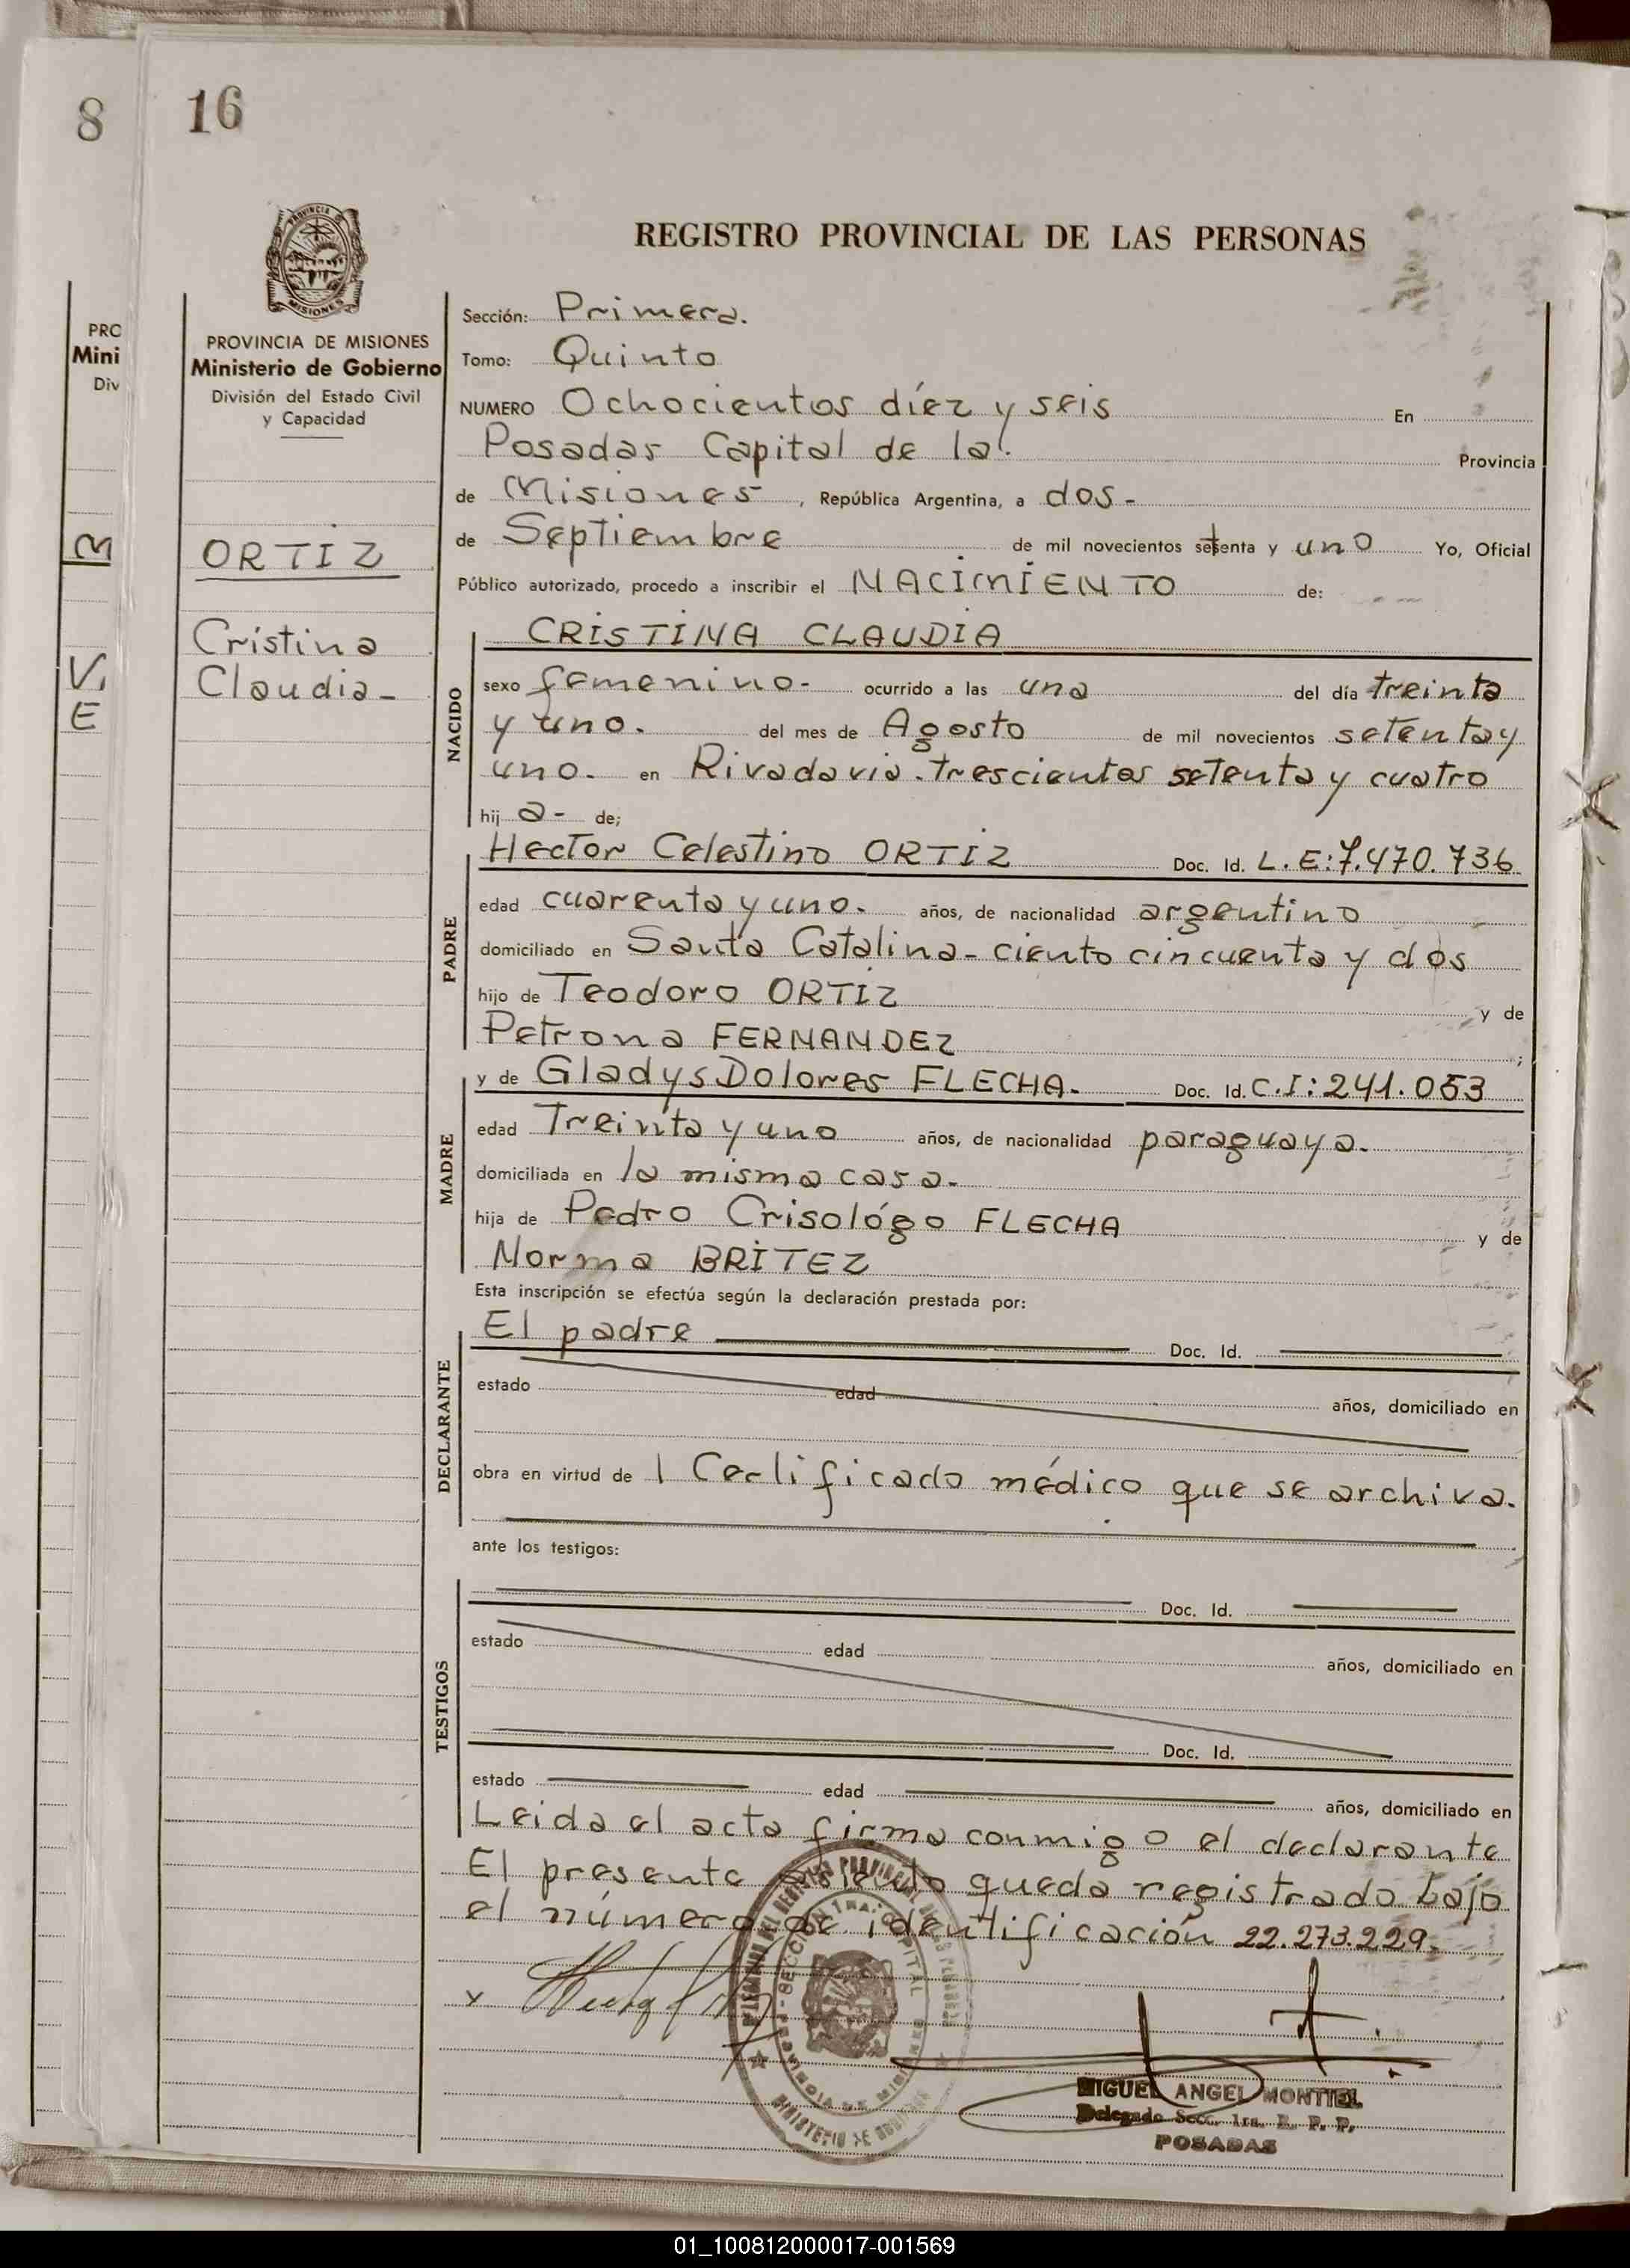 8
16
PROVINCIA
MISIONES
REGISTRO PROVINCIAL DE LAS PERSONAS
PRO
Mini
Div
V,
E
PROVINCIA DE MISIONES
Ministerio de Gobierno
División del Estado Civil
y Capacidad
ORTIZ
Cristina
Claudia-
Sección: Primera.
Tomo: Quinto
NUMERO Ochocientos díez y seis En
Posadas Capital de la. Provincia
de Misiones, República Argentina, a dos-
de Septiembre de mil novecientos setenta y uno Yo, Oficial
Público autorizado, procedo a inscribir el NACIMIENTO de:
CRISTINA CLAUDIA
NACIDO
sexo femenino- ocurrido a las una del día treinta
y uno. del mes de Agosto de mil novecientos setenta y
uno. en Rivadavia. trescientos setenta y cuatro
hij a- de;
Hector Celestino ORTIZ Doc. Id. L.E:7.470.736
PADRE
edad cuarenta y uno. años, de nacionalidad argentino
domiciliado en Santa Catalina- ciento cincuenta y dos
hijo de Teodoro ORTIZ y de
Petrona FERNANDEZ ;
y de Gladys Dolores FLECHA. Doc. Id. C.I:241.053
MADRE
edad Treinta y uno años, de nacionalidad paraguaya.
domiciliada en la misma casa.
hija de Pedro Crisológo FLECHA y de
Norma BRITEZ
Esta inscripción se efectúa según la declaración prestada por:
El padre Doc. Id.
DECLARANTE
estado edad años, domiciliado en
obra en virtud de l Certificado médico que se archiva.
ante los testigos:
Doc. Id.
TESTIGOS
estado edad años, domiciliado en
Doc. Id.
estado edad años, domiciliado en
Leida el acta firma conmigo el declarante
El presente asiento queda registrado bajo
el número de identificación 22.273.229.
x
MIGUEL ANGEL MONTIEL
Delegado Secc. 1ra. R. P. P.
POSADAS
01_100812000017-001569